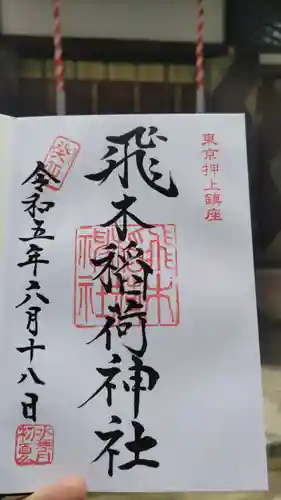 東京押上鎮座
飛木稲荷神社
飛木稲荷神社
癸卯
令和五年六月十八日
水無月
初夏